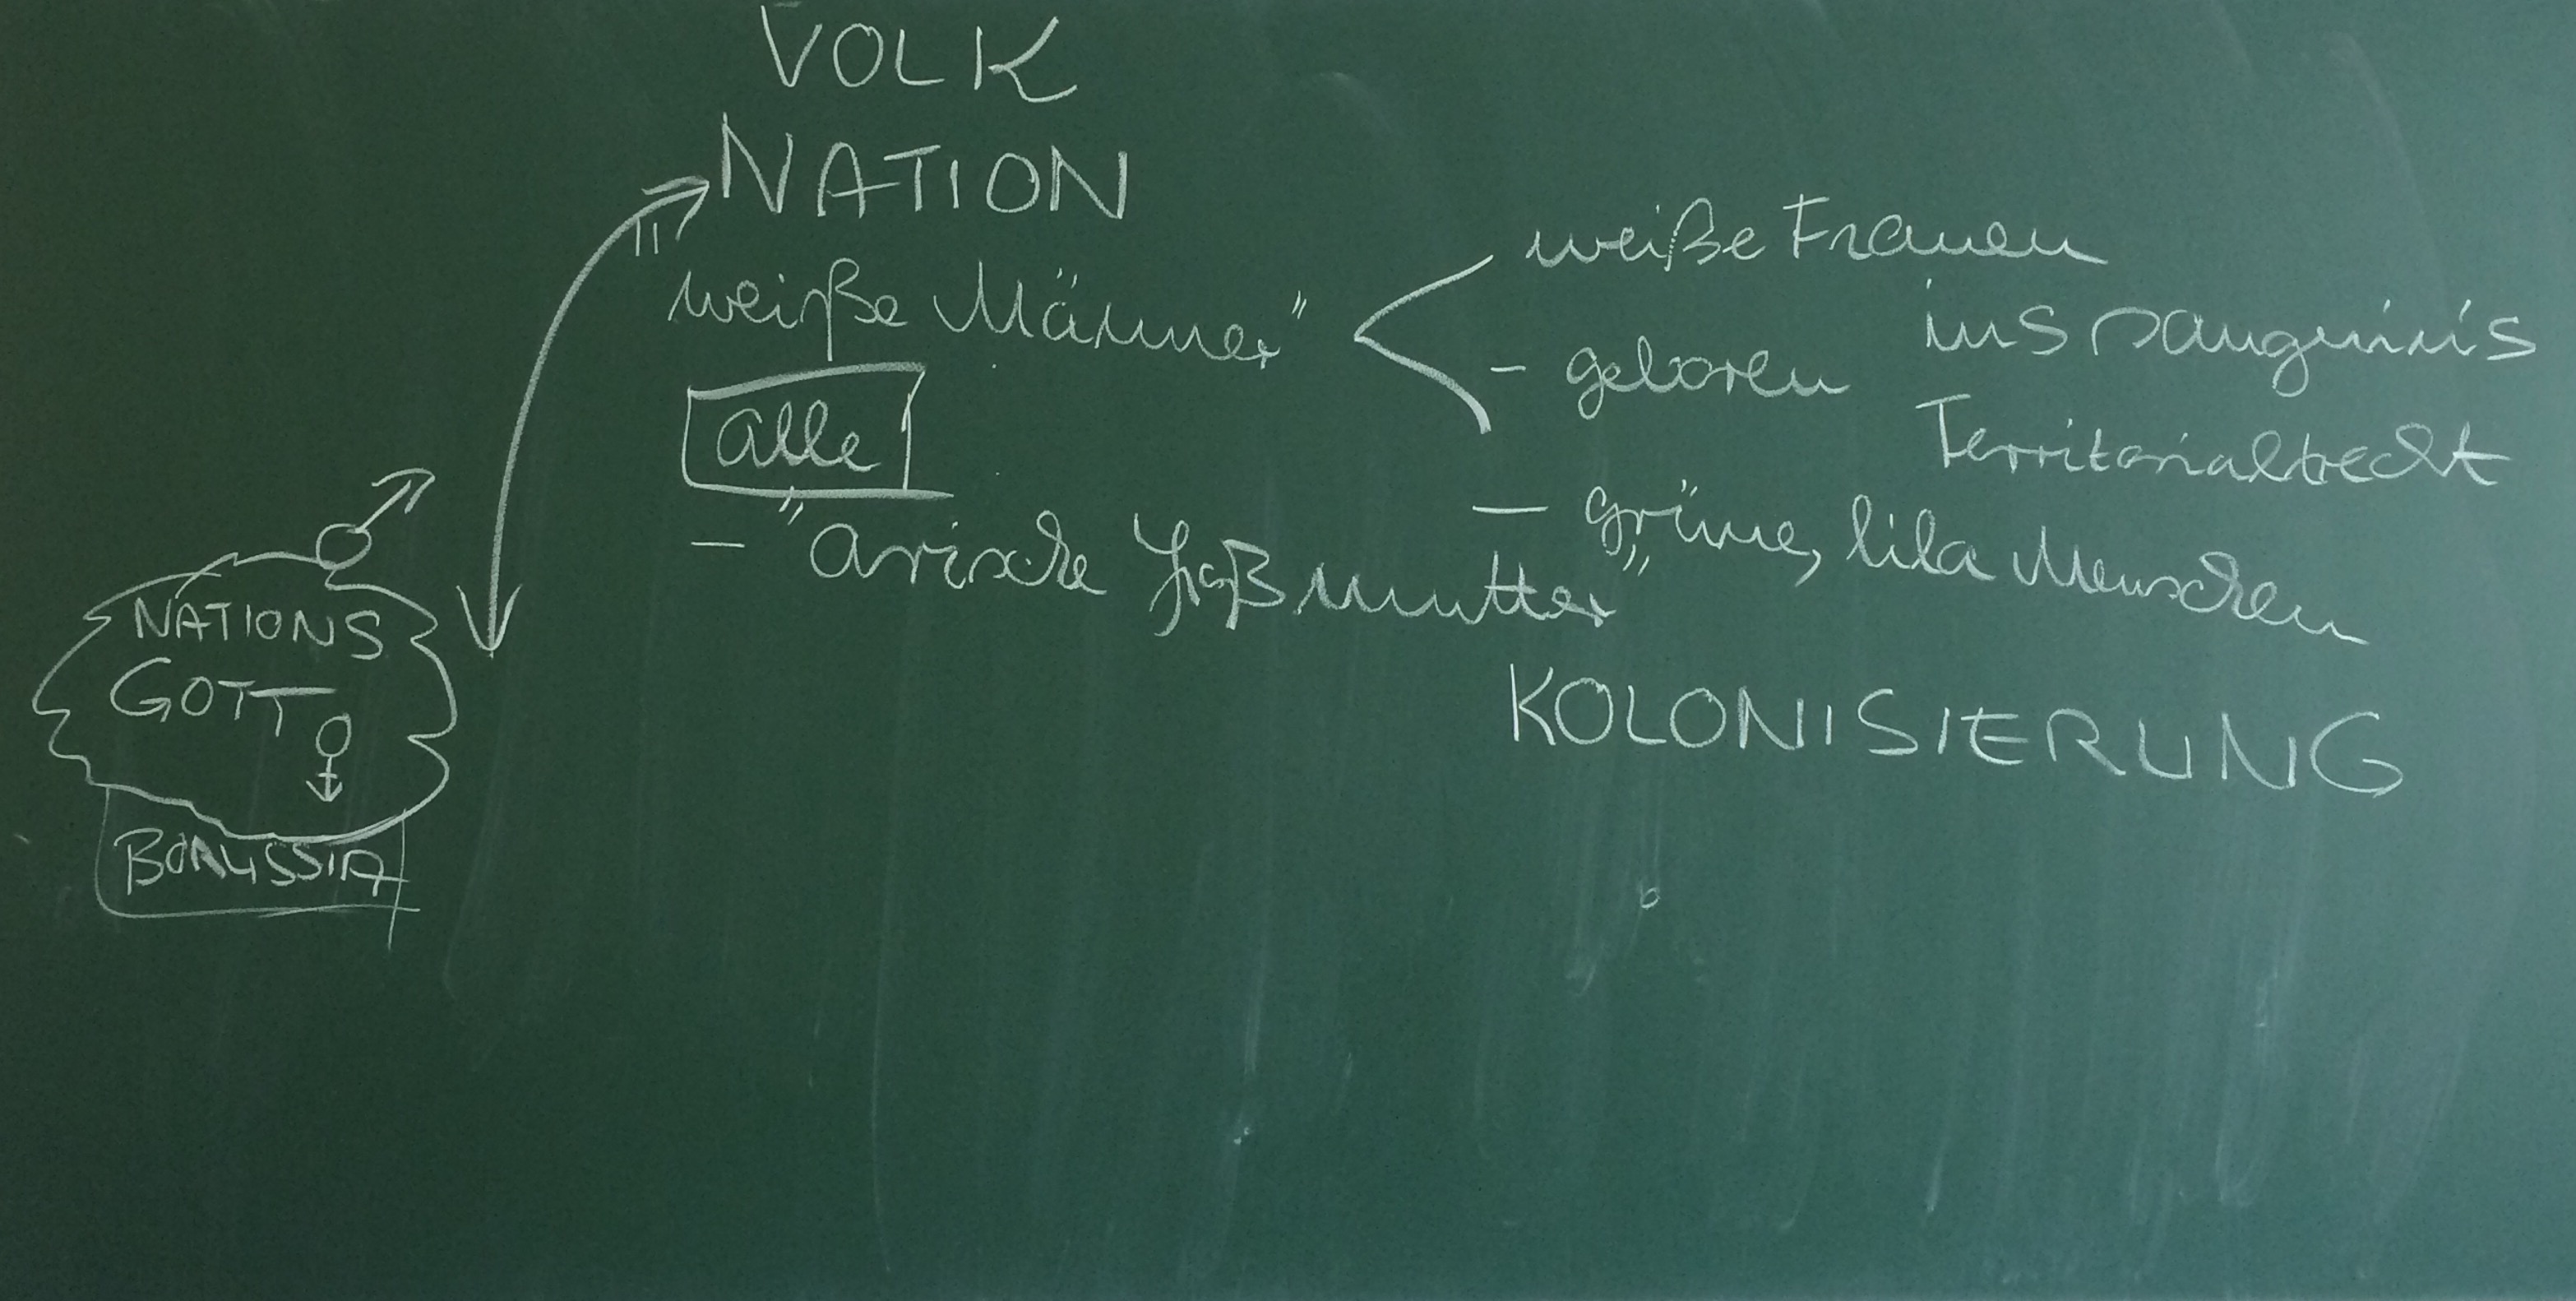 VOLK
NATION
weiße Männer"
alle
- "arische Großmutter"
weiße Frauen
- geboren
ius sanguinis
Territorialrecht
- grüne, lila Menschen
KOLONISIERUNG
NATIONS
GOTT
BORUSSIA